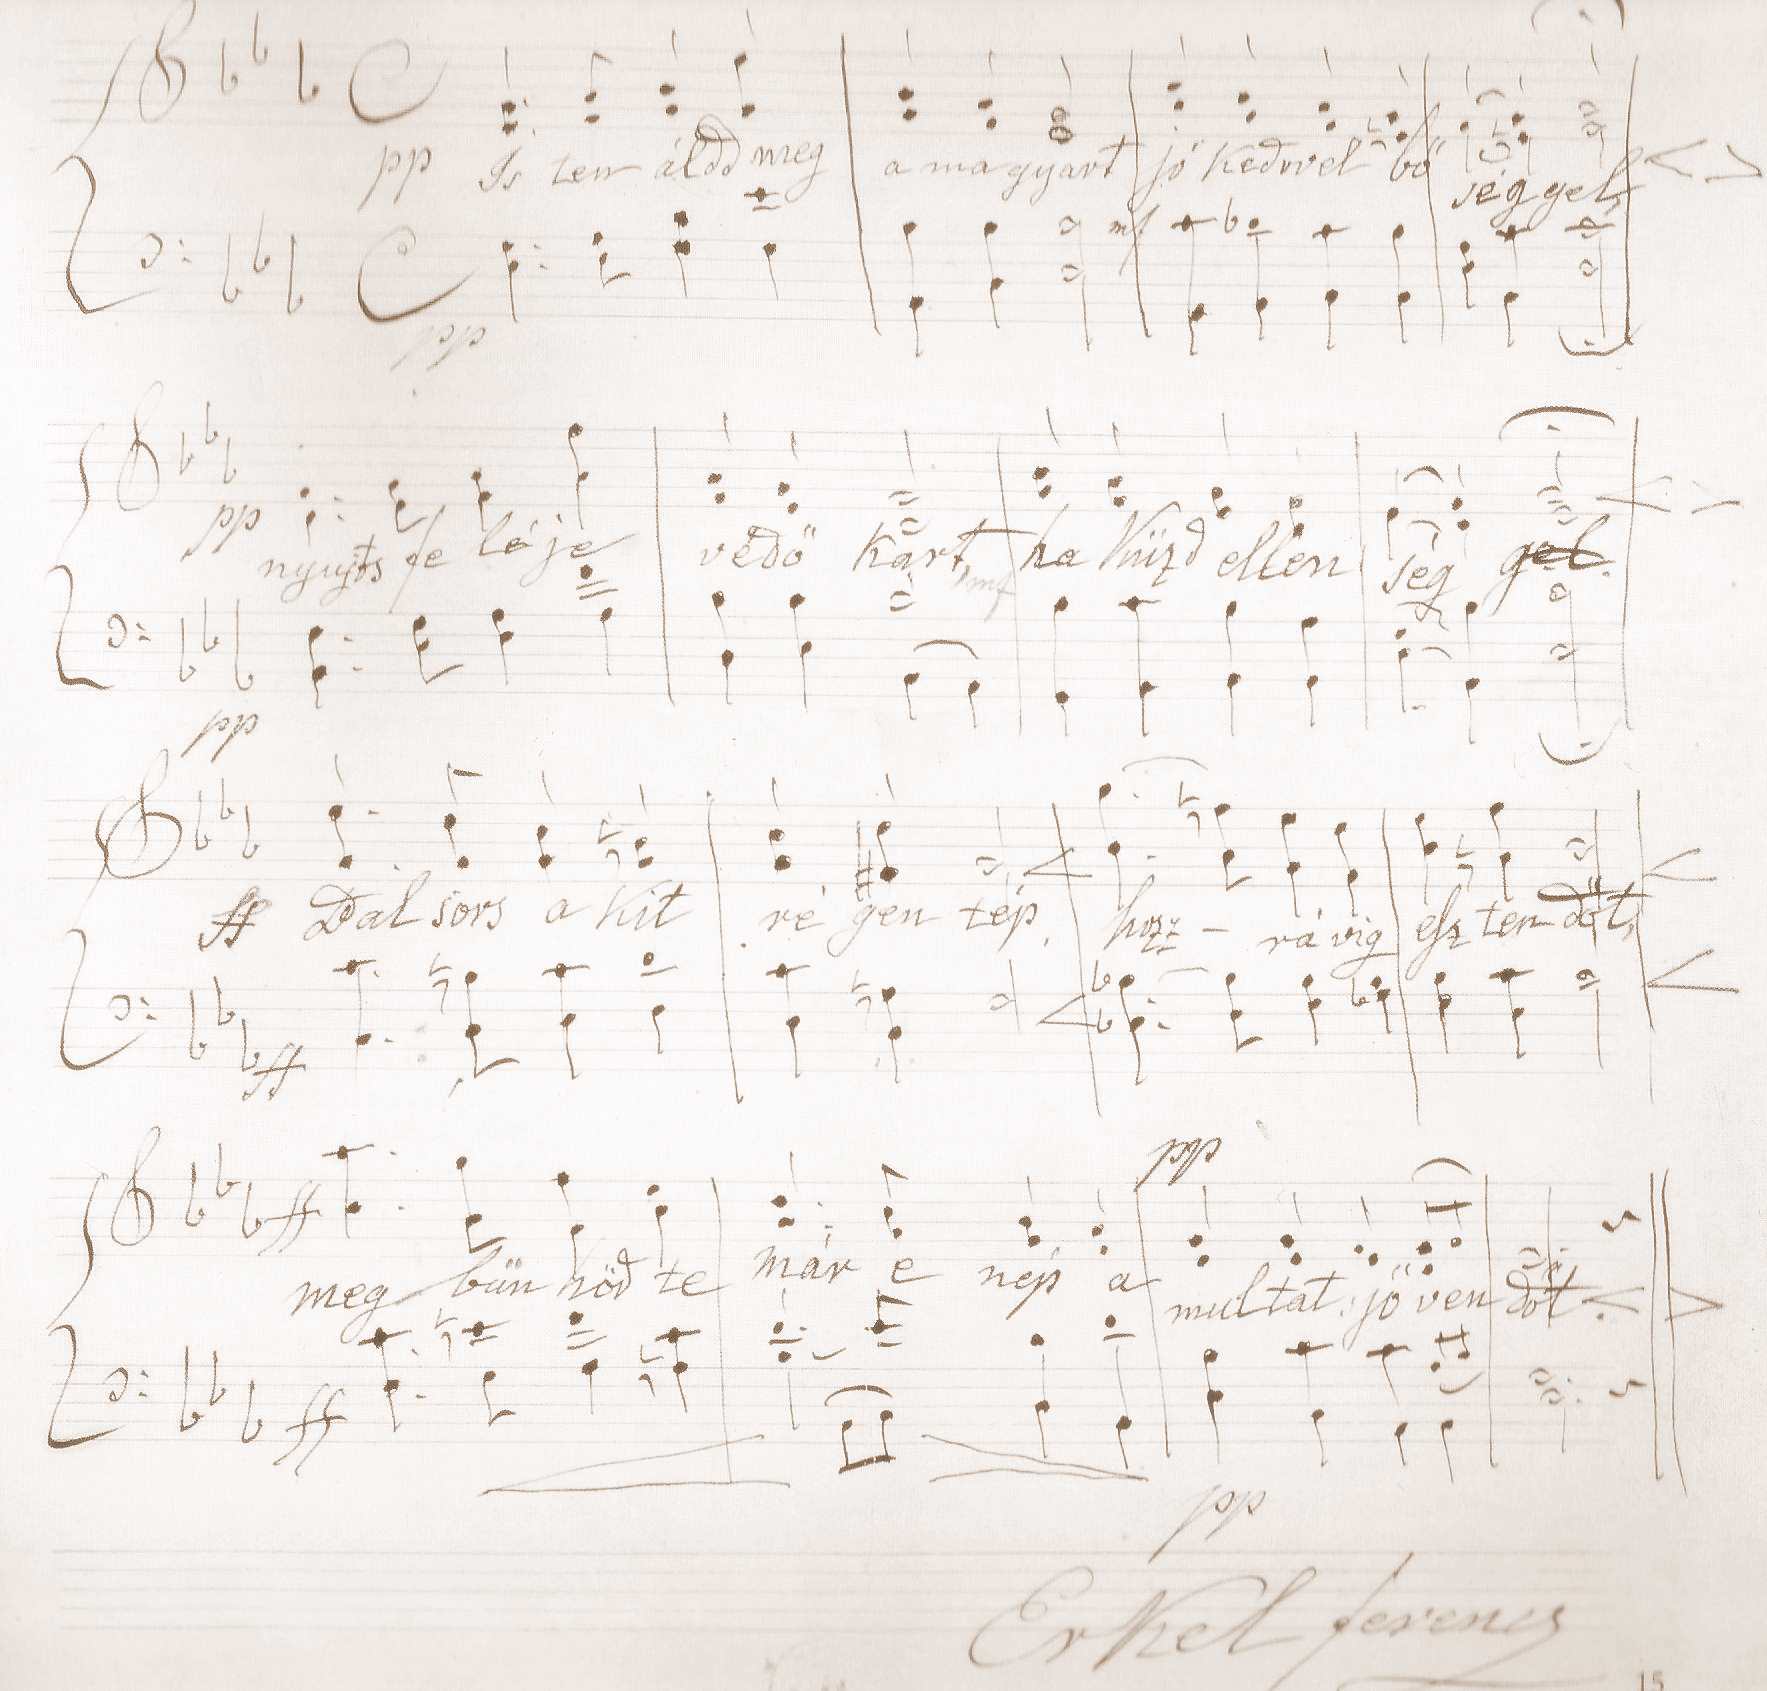 pp Is ten áldd meg a magyart jó kedvvel bő séggel,
mf
pp
pp nyujts fe léje védő kart, ha küzd ellen ség gel.
mf
pp
ff Bal sors a kit ré gen tép, hozz - rá víg esz ten dőt,
ff
pp
ff meg bün hőd te már e nép a multat jö ven dőt.
ff
pp
Erkel Ferencz
15